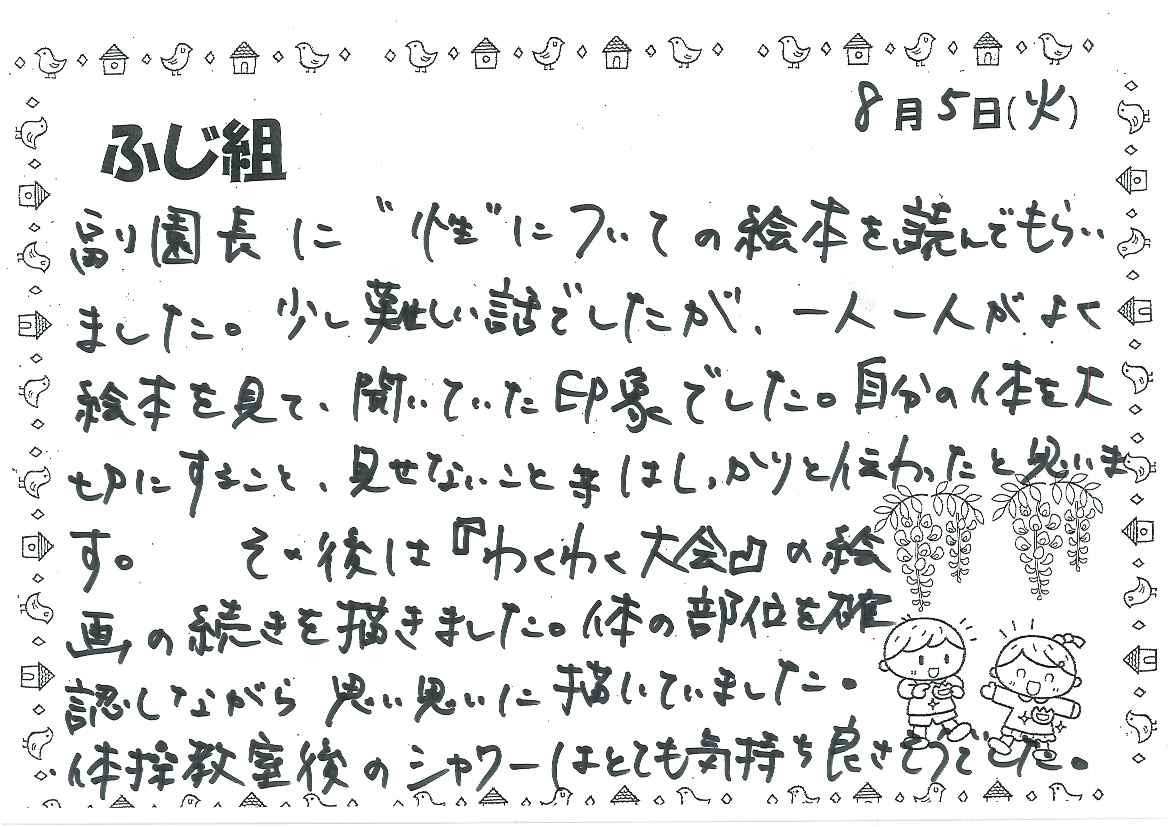 8月5日(火)
ふじ組
副園長に〝性〟についての絵本を読んでもらい
ました。少し難しい話でしたが、一人一人がよく
絵本を見て、聞いていた印象でした。自分の体を大
切にすること、見せないこと等はしっかりと伝わったと思いま
す。 その後は『わくわく大会』の絵
画の続きを描きました。体の部位を確
認しながら思い思いに描いていました。
体操教室後のシャワーはとても気持ち良さそうでした。